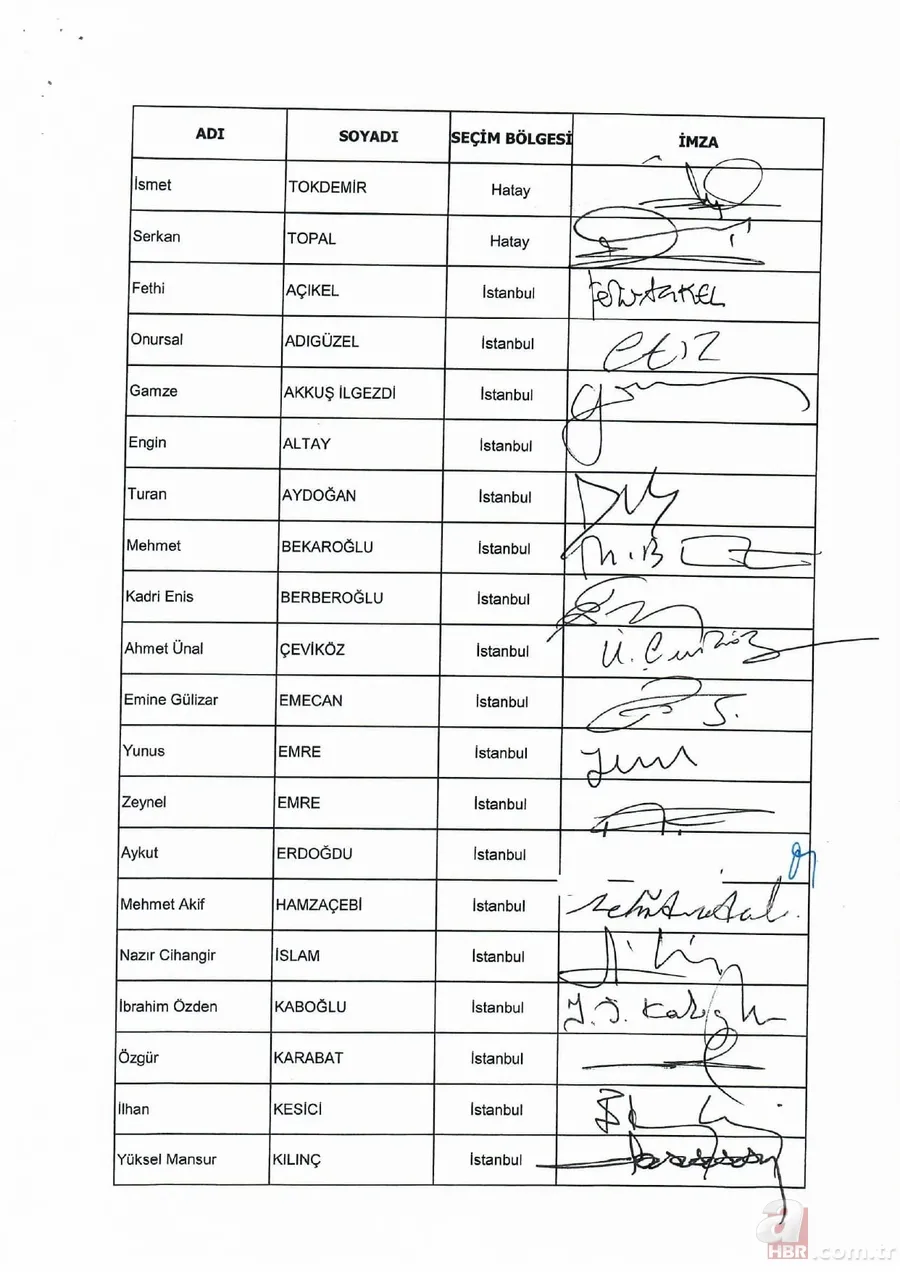 ADI SOYADI SEÇİM BÖLGESİ İMZA
İsmet TOKDEMİR Hatay
Serkan TOPAL Hatay
Fethi AÇIKEL İstanbul
Onursal ADIGÜZEL İstanbul
Gamze AKKUŞ İLGEZDİ İstanbul
Engin ALTAY İstanbul
Turan AYDOĞAN İstanbul
Mehmet BEKAROĞLU İstanbul M.B
Kadri Enis BERBEROĞLU İstanbul
Ahmet Ünal ÇEVİKÖZ İstanbul Ü. Çeviköz
Emine Gülizar EMECAN İstanbul
Yunus EMRE İstanbul
Zeynel EMRE İstanbul
Aykut ERDOĞDU İstanbul
Mehmet Akif HAMZAÇEBİ İstanbul
Nazır Cihangir İSLAM İstanbul
İbrahim Özden KABOĞLU İstanbul İ.Ö. Kaboğlu
Özgür KARABAT İstanbul
İlhan KESİCİ İstanbul
Yüksel Mansur KILINÇ İstanbul
a
HBR.com.tr